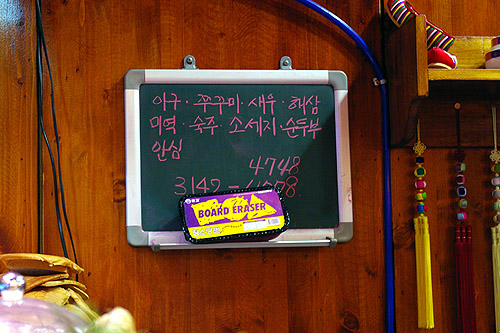 아구·쭈꾸미·새우·해삼
미역·숙주·소세지·순두부
안심
4748
3142 -
BOARD ERASER